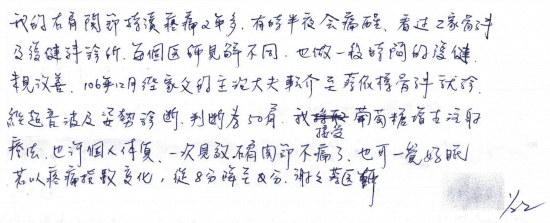 我的右肩關節持續疼痛2年多,有時半夜會痛醒,看过2家骨科
及復健科診所,每個医師見解不同,也做一段時間的復健,
未見改善,106年12月經家父的主治大夫転介至蔡依橙骨科就診,
經超音波及姿勢診斷,判斷為50肩,我接受葡萄糖增生注射
療法,也許個人体質,一次見效,右肩関節不痛了,也可一覺好眠
若以疼痛指数変化,從8分降至2分,謝謝蔡医師
1/22